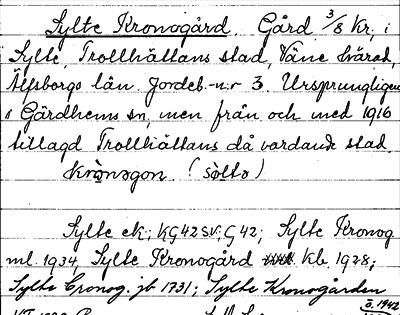 Sylte Kronogård. Gård 3/8 Kr, i
Sylte, Trollhättans stad, Väne härad,
Älfsborgs län. Jordeb.-n:r 3. Ursprungligen
i Gärdhems sn, men från och med 1916
tillagd Trollhättans då vardande stad.
krònogon. (sỳltə)
Sylte ek; KG42SV; G42; Sylte Kronog
ml. 1934, Sylte Kronogård kb 1928;
Sylte Cronog. jb 1731; Sylte Kronogården
ö. 1942